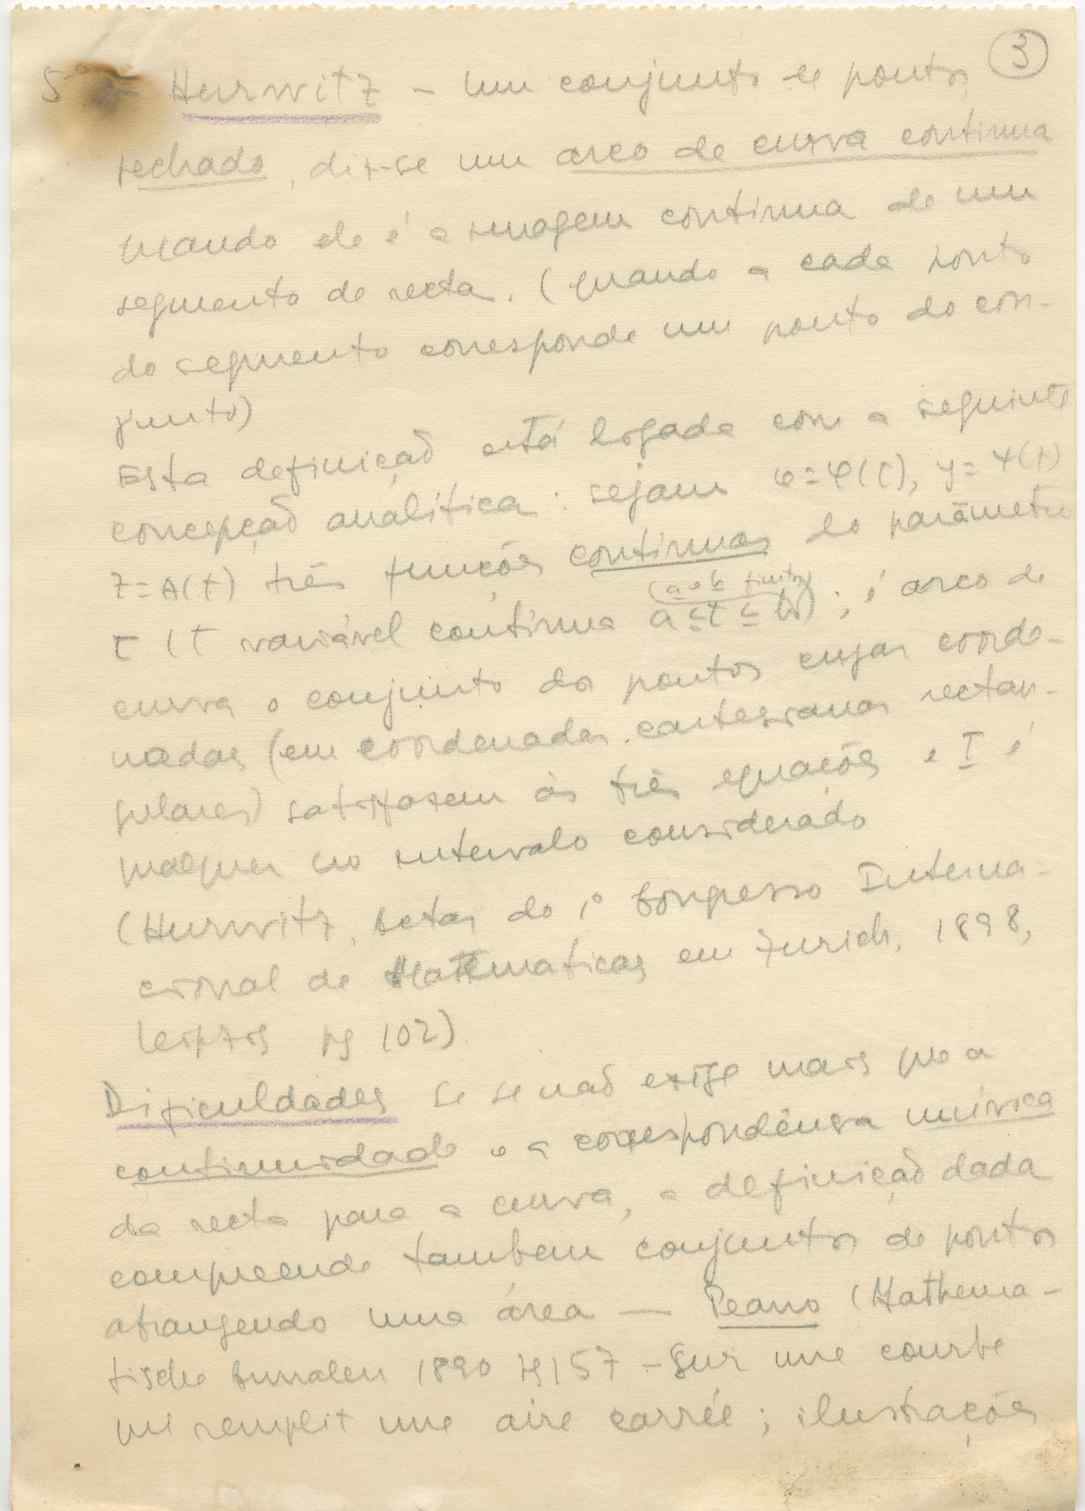 3
5º - Hurwitz - Um conjunto de pontos
fechado, diz-se um arco de curva continua
quando ele é a imagem continua de um
segmento de recta. (quando a cada ponto
do segmento corresponde um ponto do con-
junto)
Esta definição está ligada com a seguinte
concepção analítica: sejam x=φ(t), y=ψ(t)
z=A(t) três funções continuas do parâmetro
t (t variável continua a≤t≤b); é arco de
(a e b finitos)
curva o conjunto dos pontos cujas coorde-
nadas (em coordenadas cartesianas rectan-
gulares) satisfazem às três equações e t é
qualquer no intervalo considerado
(Hurwitz, Actas do 1º Congresso Interna-
cional de Matematicas em Zurich, 1898,
Leipzig pg 102)
Dificuldades se se não exige mais que a
continuidade e a correspondência unívoca
da recta para a curva, a definição dada
compreende tambem conjuntos de pontos
abrangendo uma área — Peano (Mathema-
tische Annalen 1890 pg 157 - Sur une courbe
qui remplit une aire carrée; ilustrações